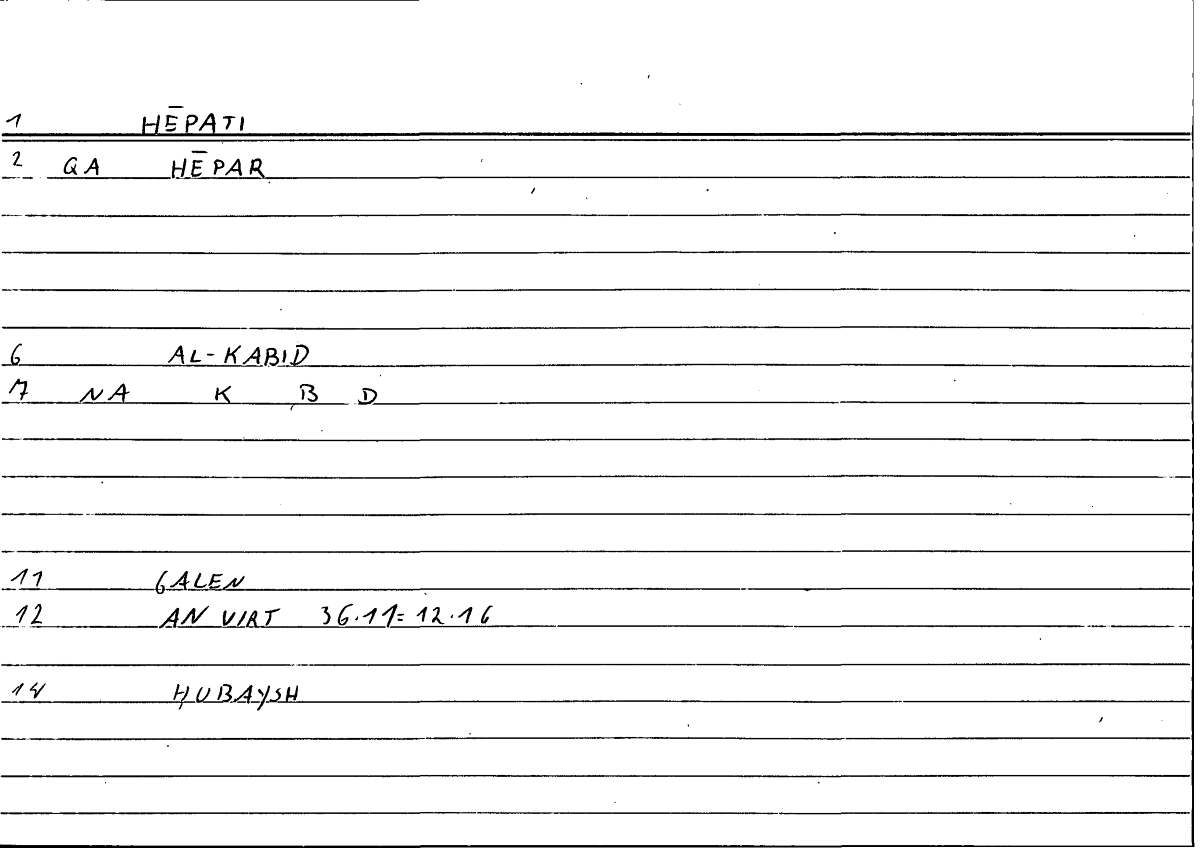 1 HĒPATI
2 QA HĒPAR
6 AL-KABID
7 NA K B D
11 GALEN
12 AN VIRT 36.11=12.16
14 ḤUBAYSH